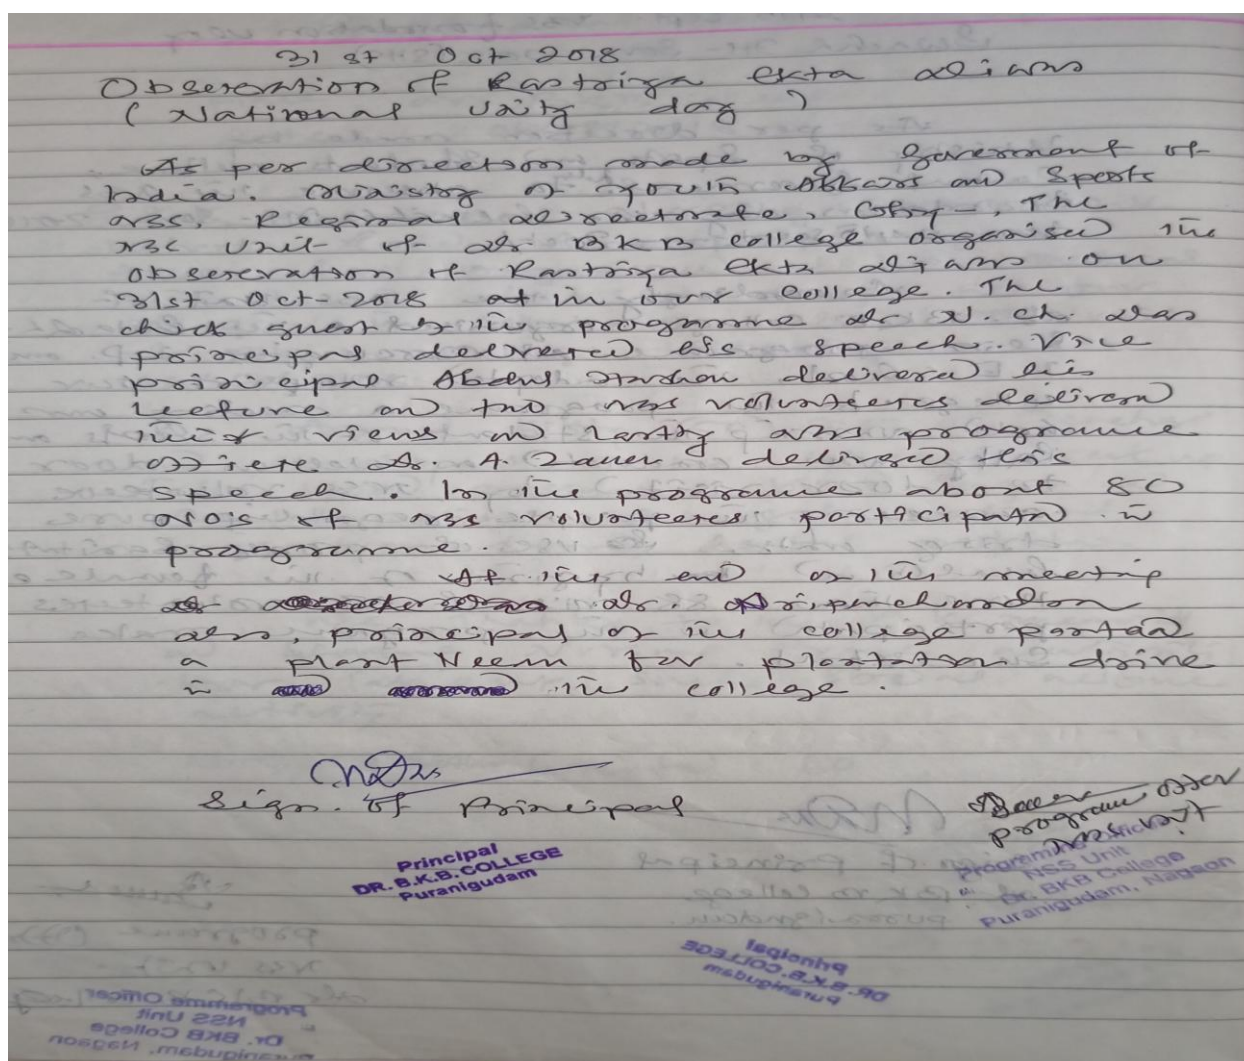 31 st Oct 2018
Obsereration of Rastriya Ekta Diwas
(National Unity day)
As per direction made by Goverment of
India. Ministry of Youth Affairs and Sports
NSS, Regional Directorate, Ghy-, The
NSS Unit of Dr. BKB College organised the
Obsereration of Rastriya Ekta Diwas on
31st Oct-2018 at in our College. The
chick guest of the programme Dr N. Ch. Das
principal delivered his speech. Vice
principal delivered his
Lecture and two NSS volunteeres deliverd
their views and lastly NSS programme
Dr. A. Zaman delivered this
speech. In the programme about 80
NO's of NSS Volunteeres participated in
programme.
At the end of the meeting
Dr. Nripenchandra
Das, principal of the college
a plant Neem for plantation drive
in the college.
Sign. of Principal
Principal
DR. B.K.B. COLLEGE
Puranigudam
program officer
NSS Unit
Programme Officer
NSS Unit
Dr. BKB College
Puranigudam, Nagaon
Principal
DR. B.K.B. COLLEGE
Puranigudam
Programme Officer
NSS Unit
Dr. BKB College
Puranigudam, Nagaon